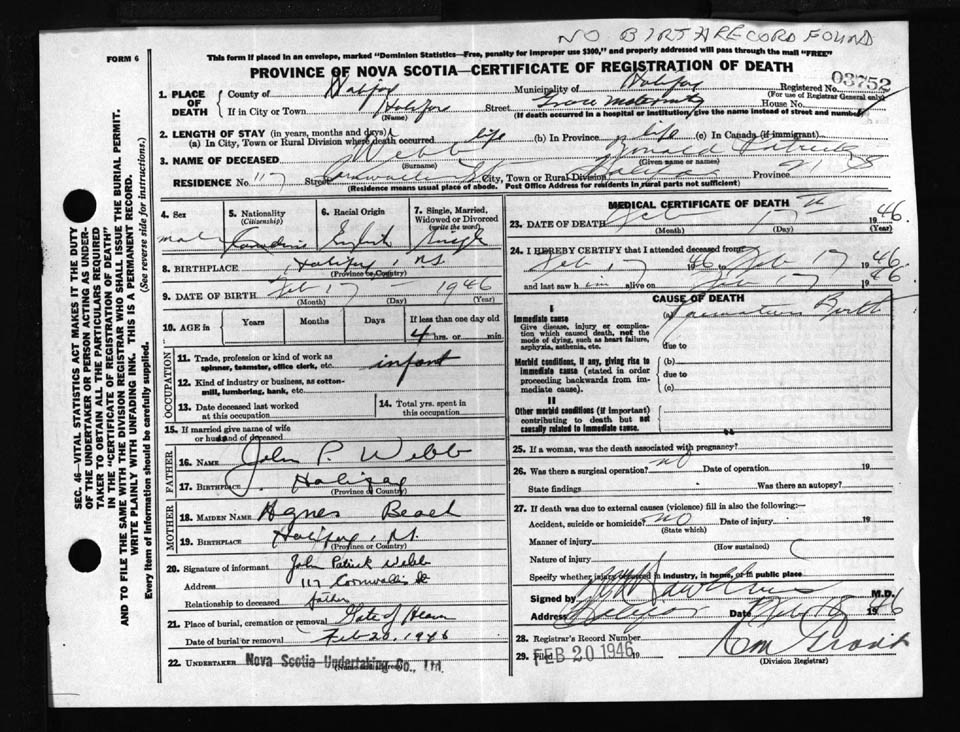 NO BIRTH RECORD FOUND
FORM 6
This form if placed in an envelope, marked "Dominion Statistics—Free, penalty for improper use $300," and properly addressed will pass through the mail "FREE"
PROVINCE OF NOVA SCOTIA—CERTIFICATE OF REGISTRATION OF DEATH
Registered No. 03752
(For use of Registrar General only)
1. PLACE OF DEATH
County of Halifax
Municipality of Halifax
If in City or Town Halifax
(Name)
Street Grace Maternity House No.
(If death occurred in a hospital or institution, give the name instead of street and number)
2. LENGTH OF STAY (in years, months and days)
(a) In City, Town or Rural Division where death occurred life (b) In Province life (c) In Canada (if immigrant)
3. NAME OF DECEASED Webb Ronald Patrick
(Surname) (Given name or names)
RESIDENCE No. 117 Street Cornwallis St City, Town or Rural Division Halifax Province N S
(Residence means usual place of abode. Post Office Address for residents in rural parts not sufficient)
4. Sex male
5. Nationality (Citizenship) Canadian
6. Racial Origin English
7. Single, Married, Widowed or Divorced (write the word) Single
8. BIRTHPLACE Halifax, N.S.
(Province or Country)
9. DATE OF BIRTH Feb 17 1946
(Month) (Day) (Year)
10. AGE in Years Months Days If less than one day old
4 hrs. or min.
OCCUPATION
11. Trade, profession or kind of work as spinner, teamster, office clerk, etc. infant
12. Kind of industry or business, as cotton-mill, lumbering, bank, etc.
13. Date deceased last worked at this occupation
14. Total yrs. spent in this occupation
15. If married give name of wife or husband of deceased
FATHER
16. NAME John P. Webb
17. BIRTHPLACE Halifax
(Province or Country)
MOTHER
18. MAIDEN NAME Agnes Beach
19. BIRTHPLACE Halifax, N.S.
(Province or Country)
20. Signature of informant John Patrick Webb
Address 117 Cornwallis St
Relationship to deceased father
21. Place of burial, cremation or removal Gate of Heaven
Date of burial or removal Feb 20, 1946
22. UNDERTAKER Nova Scotia Undertaking Co., Ltd.
MEDICAL CERTIFICATE OF DEATH
23. DATE OF DEATH Feb 17th 1946.
(Month) (Day) (Year)
24. I HEREBY CERTIFY that I attended deceased from
Feb 17 1946 to Feb 17 1946
and last saw him alive on Feb 17 1946
CAUSE OF DEATH
I
Immediate cause (a) Premature Birth
Give disease, injury or complication which caused death, not the mode of dying, such as heart failure, asphyxia, asthenia, etc.
due to
Morbid conditions, if any, giving rise to immediate cause (stated in order proceeding backwards from immediate cause).
(b)
due to
(c)
II
Other morbid conditions (if important) contributing to death but not causally related to immediate cause.
25. If a woman, was the death associated with pregnancy?
26. Was there a surgical operation? no Date of operation 19
State findings Was there an autopsy?
27. If death was due to external causes (violence) fill in also the following:—
Accident, suicide or homicide? no Date of injury 19
(State which)
Manner of injury
(How sustained)
Nature of injury
Specify whether injury occurred in industry, in home, or in public place
Signed by M.D.
Address Halifax Date Feb 18 1946
28. Registrar's Record Number
29. Filed FEB 20 1946 19
(Division Registrar)
SEC. 46—VITAL STATISTICS ACT MAKES IT THE DUTY OF THE UNDERTAKER OR PERSON ACTING AS UNDERTAKER TO OBTAIN ALL THE PARTICULARS REQUIRED IN THE "CERTIFICATE OF REGISTRATION OF DEATH" AND TO FILE THE SAME WITH THE DIVISION REGISTRAR WHO SHALL ISSUE THE BURIAL PERMIT.
WRITE PLAINLY WITH UNFADING INK. THIS IS A PERMANENT RECORD.
Every item of information should be carefully supplied. (See reverse side for instructions.)